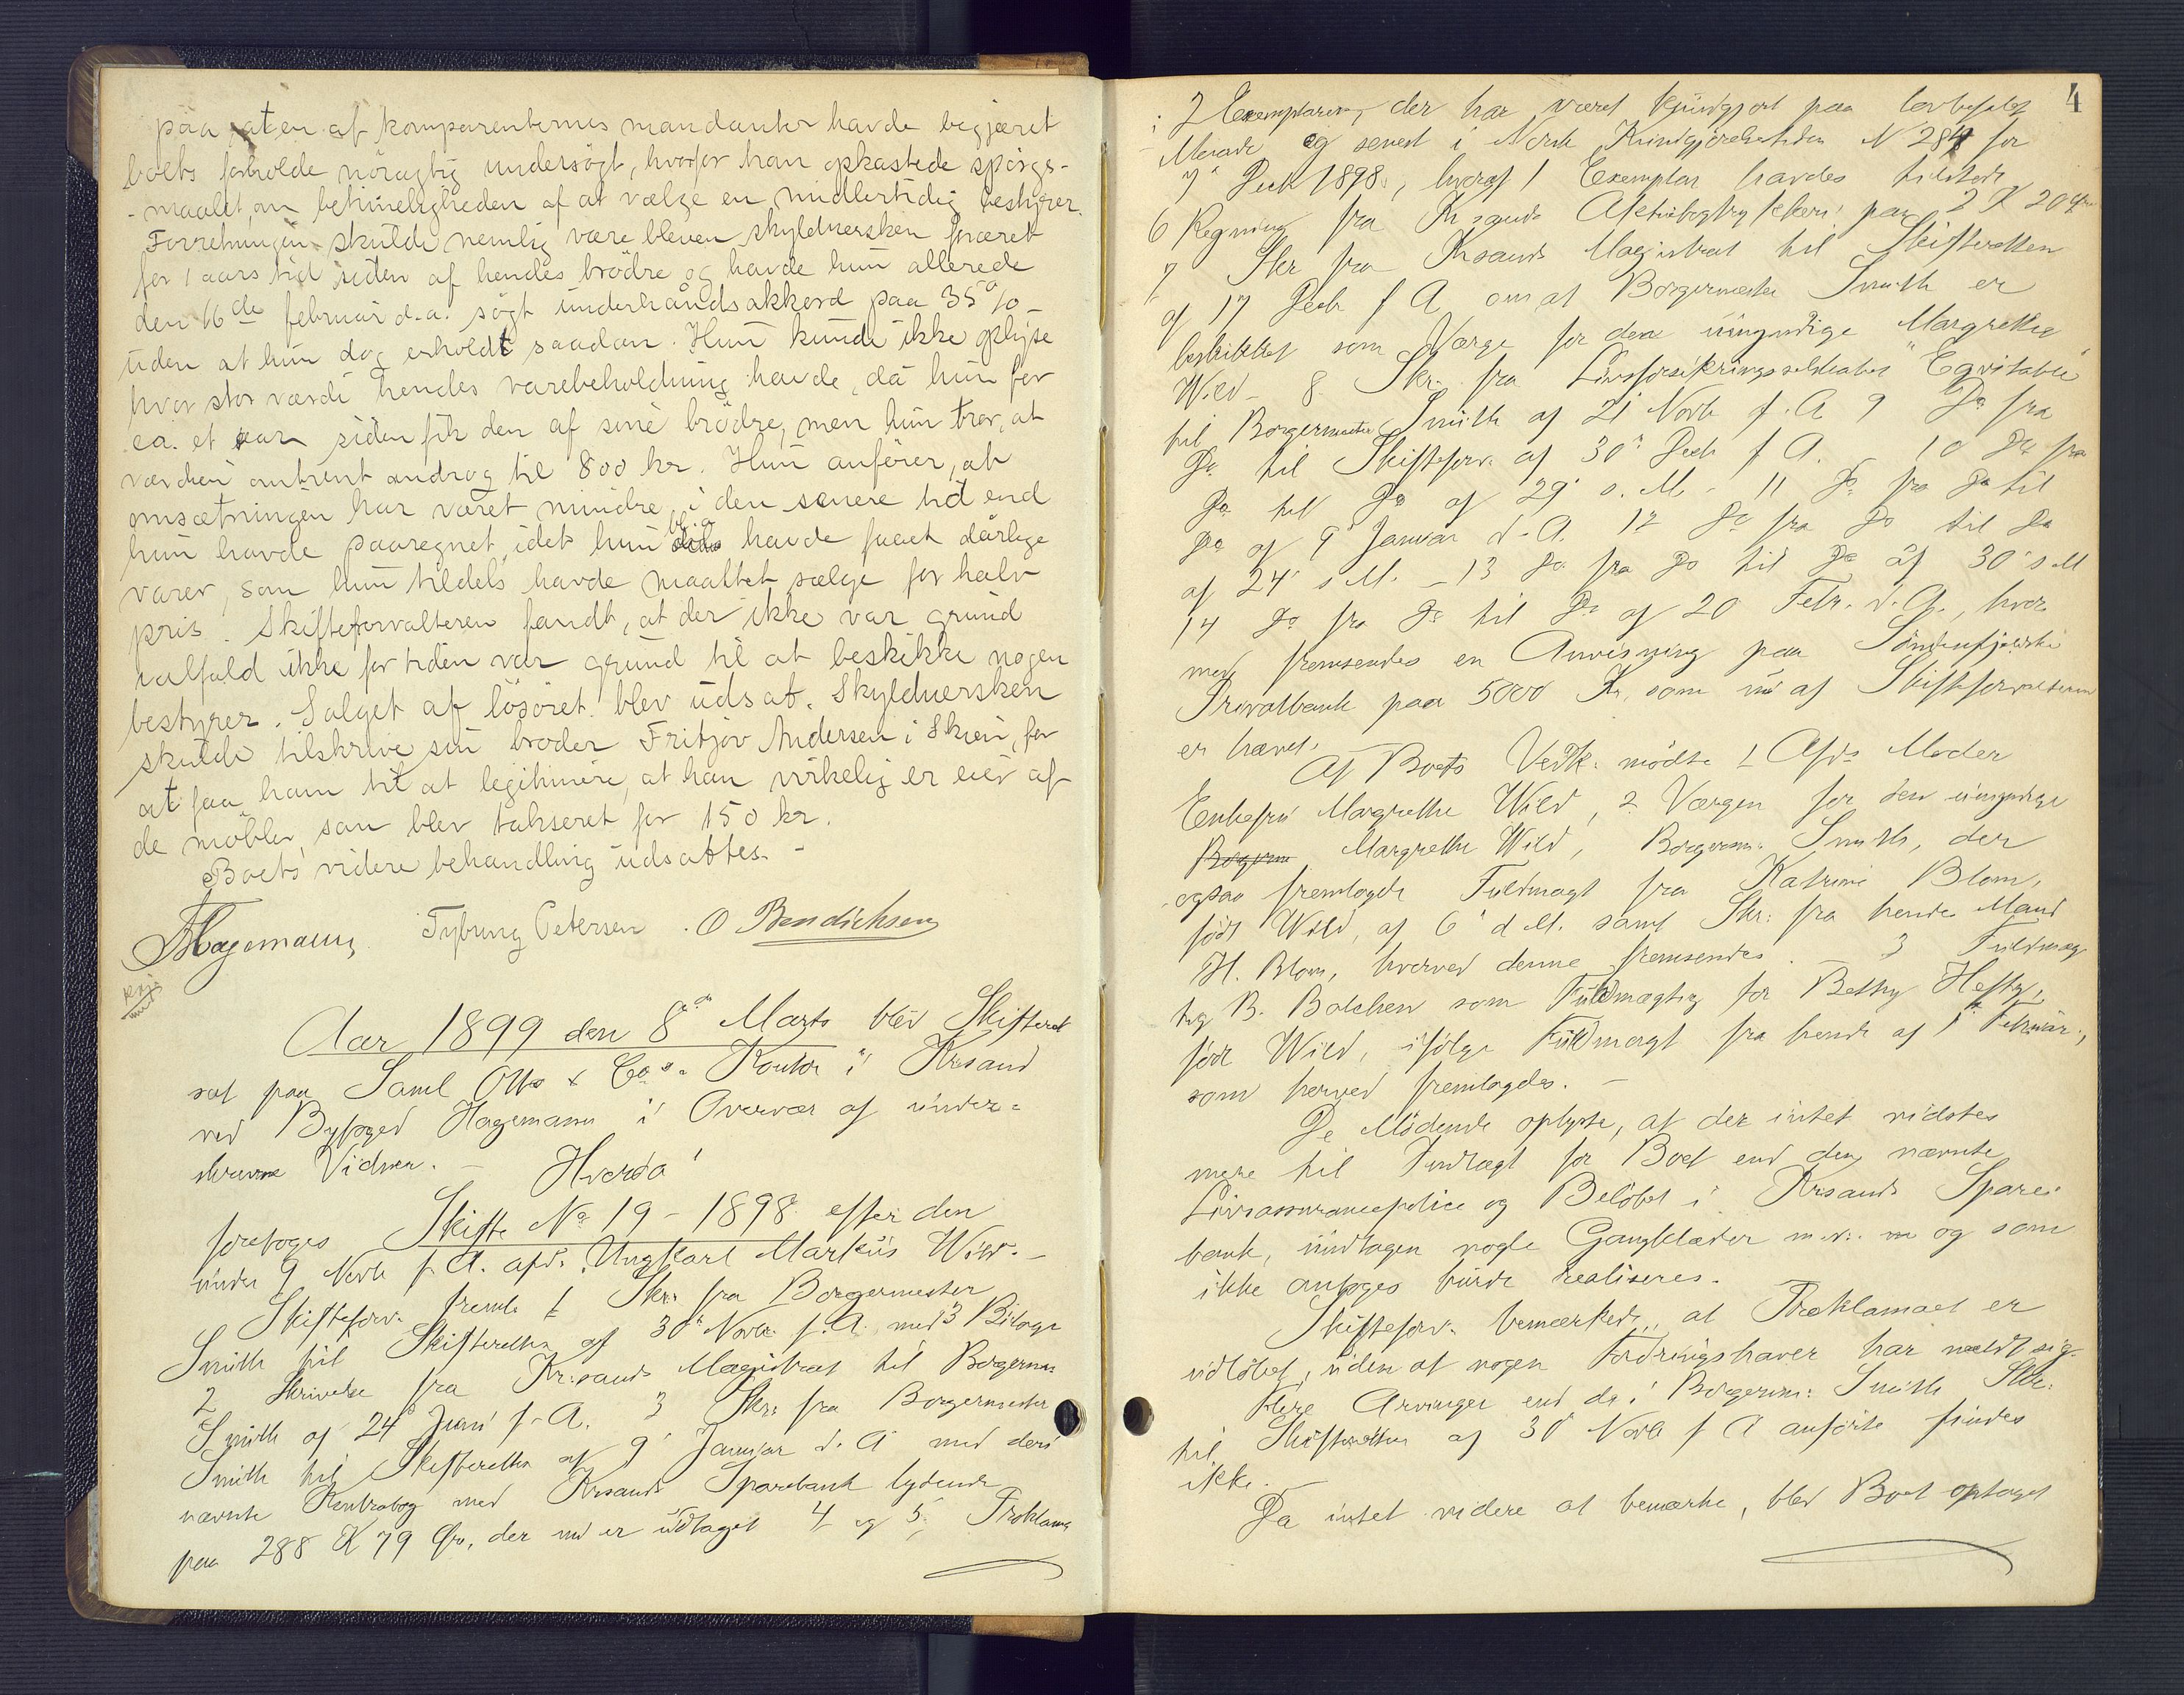 paa at en af komparenternes mandanter havde begjæret
boets forholde nöiagtig undersögt, hvorfor han opkastede spörgs-
maalet, om betimeligheden af at vælge en midlertidig bestyrer.
Forretningen skulde nemlig være bleven skyldnersken foræret
for 1 aars tid siden af hendes brödre og havde hun allerede
den 16de februar d.a. sögt underhåndsakkord paa 35 %
uden at hun dog erholdt saadan. Hun kunde ikke oplyse
hvor stor værdi hendes varebeholdning havde, da hun for
ca. et aar siden fik den af sine brödre, men hun tror, at
værdien omtrent androg til 800 kr. Hun anförer, at
omsætningen har været mindre i den senere tid end
hun havde paaregnet, idet hun bl.a. havde faaet dårlige
varer, som hun tildels havde maattet sælge for halv
pris. Skifteforvalteren fandt, at der ikke var grund
ialfald ikke for tiden var grund til at beskikke nogen
bestyrer. Salget af lösöret blev udsat. Skyldnersken
skulde tilskrive sin broder Fritjov Andersen i Skien, for
at faa ham til at legitimere, at han virkelig er eier af
de möbler, som blev takseret for 150 kr.
Boets videre behandling udsattes. -
Hagemann Tybring Petersen. O Bendichsen
Aar 1899 den 8de Marts blev Skifteret
sat paa Saml Otto & Co's Kontor i Krsand
ved Byfoged Hagemann i Overvær af under-
skrevne Vidner. - Hvorda
foretoges Skifte No 19 - 1898 efter den
under 9 Novb f. A. afd. Ungkarl Markus Wild. -
Skifteforv. freml 1 Skr. fra Borgermester
Smith til Skifteretten af 30' Novbr. f. A. med 3 Bilage
2 Skrivelse fra Kr.sands Magistrat til Borgerm
Smith af 24' Juni f. A. 3 Skr. fra Borgermester
Smith til Skifteretten af 9' Januar d. A med den i
nævnte Kontrabog med Krsands Sparebank lydende
paa 288 K 79 Øre, der nu er udtaget 4 og 5. Proklama
4
i 2 Exemplarer, der har været kundgjort paa lovbefalet
Maade og senest i Norsk Kundgjørelsestidende N 284 for
7' Decb 1898, hvoraf 1 Exemplar havdes tilstede
6 Regning fra Krsands Aktiebogtrykkeri paa 2 K 20 Øre
7 Skr fra Krsands Magistrat til Skifteretten
af 17 Decb f A om at Borgermester Smith er
beskikket som Værge for den umyndige Margrethe
Wild - 8 Skr. fra Livsforsikringsselskabet "Eqvitable"
til Borgermester Smith af 21' Novb f. A 9 Do fra
Do til Skifteforv. af 30' Decb f A. 10 Do fra
Do til Do af 29' s. M. - 11 Do fra Do til
Do af 9' Januar d. A. 12 Do fra Do til Do
af 24' s M. - 13 Do fra Do til Do af 30' s M
14 Do fra Do til Do af 20 Febr. d. A., hvor
med fremsendes en Anvisning paa Søndenfjeldske
Privatbank paa 5000 Kr. som nu af Skifteforvalteren
er hævet.
Af Boets Vedk. mödte 1 Afds Moder
Enkefru Margrethe Wild, 2 Værgen for den umyndige
Borgerm Margrethe Wild, Borgerm. Smith, der
ogsaa fremlagde Fuldmagt fra Katrine Blom,
født Wild, af 6' d M. samt Skr. fra hendes Mand
H. Blom, hvorved denne fremsendes. 3 Fuldmæg
tig B. Balchen som Fuldmægtig for Betty Hefty,
født Wild, ifølge Fuldmagt fra hende af 1' Februar,
som herved fremlagdes. -
De Mödende oplyste, at der intet vidstes
mere til Indtægt for Boet end den nævnte
Livsassurancepolice og Beløbet i Krsands Spare-
bank, undtagen nogle Gangklæder m.v. m og som
ikke antoges burde realiseres.
Skifteforv. bemærkede, at Proklamaet er
udløbet, uden at nogen Fordringshaver har meldt sig.
Flere Arvinger end de i Borgerm: Smith Skr.
til Skifteretten af 30 Novb f A anførte findes
ikke. -
Da intet videre at bemærke, blev Boet optaget